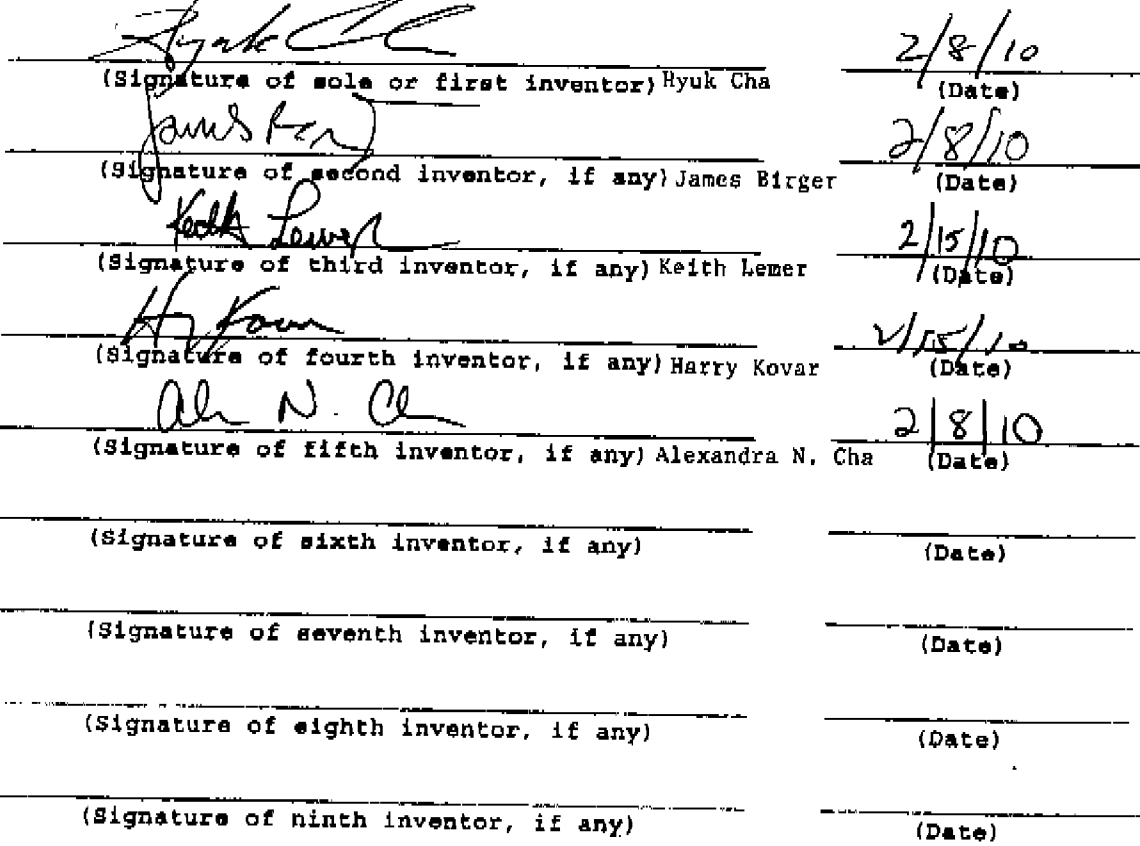 Hyuk Ch 2/8/10
(Signature of sole or first inventor) Hyuk Cha (Date)
James 2/8/10
(Signature of second inventor, if any) James Birger (Date)
Keith Lemer 2/15/10
(Signature of third inventor, if any) Keith Lemer (Date)
Kovar 2/15/10
(Signature of fourth inventor, if any) Harry Kovar (Date)
N. 2/8/10
(Signature of fifth inventor, if any) Alexandra N. Cha (Date)
(Signature of sixth inventor, if any) (Date)
(Signature of seventh inventor, if any) (Date)
(Signature of eighth inventor, if any) (Date)
(Signature of ninth inventor, if any) (Date)